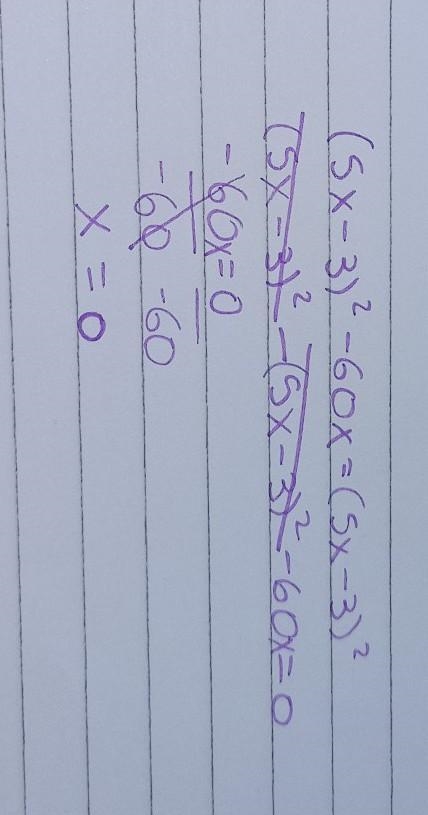 (5x-3)²-60x=(5x-3)²
(5x-3)²-(5x-3)²-60x=0
-60x=0
-60 -60
x=0